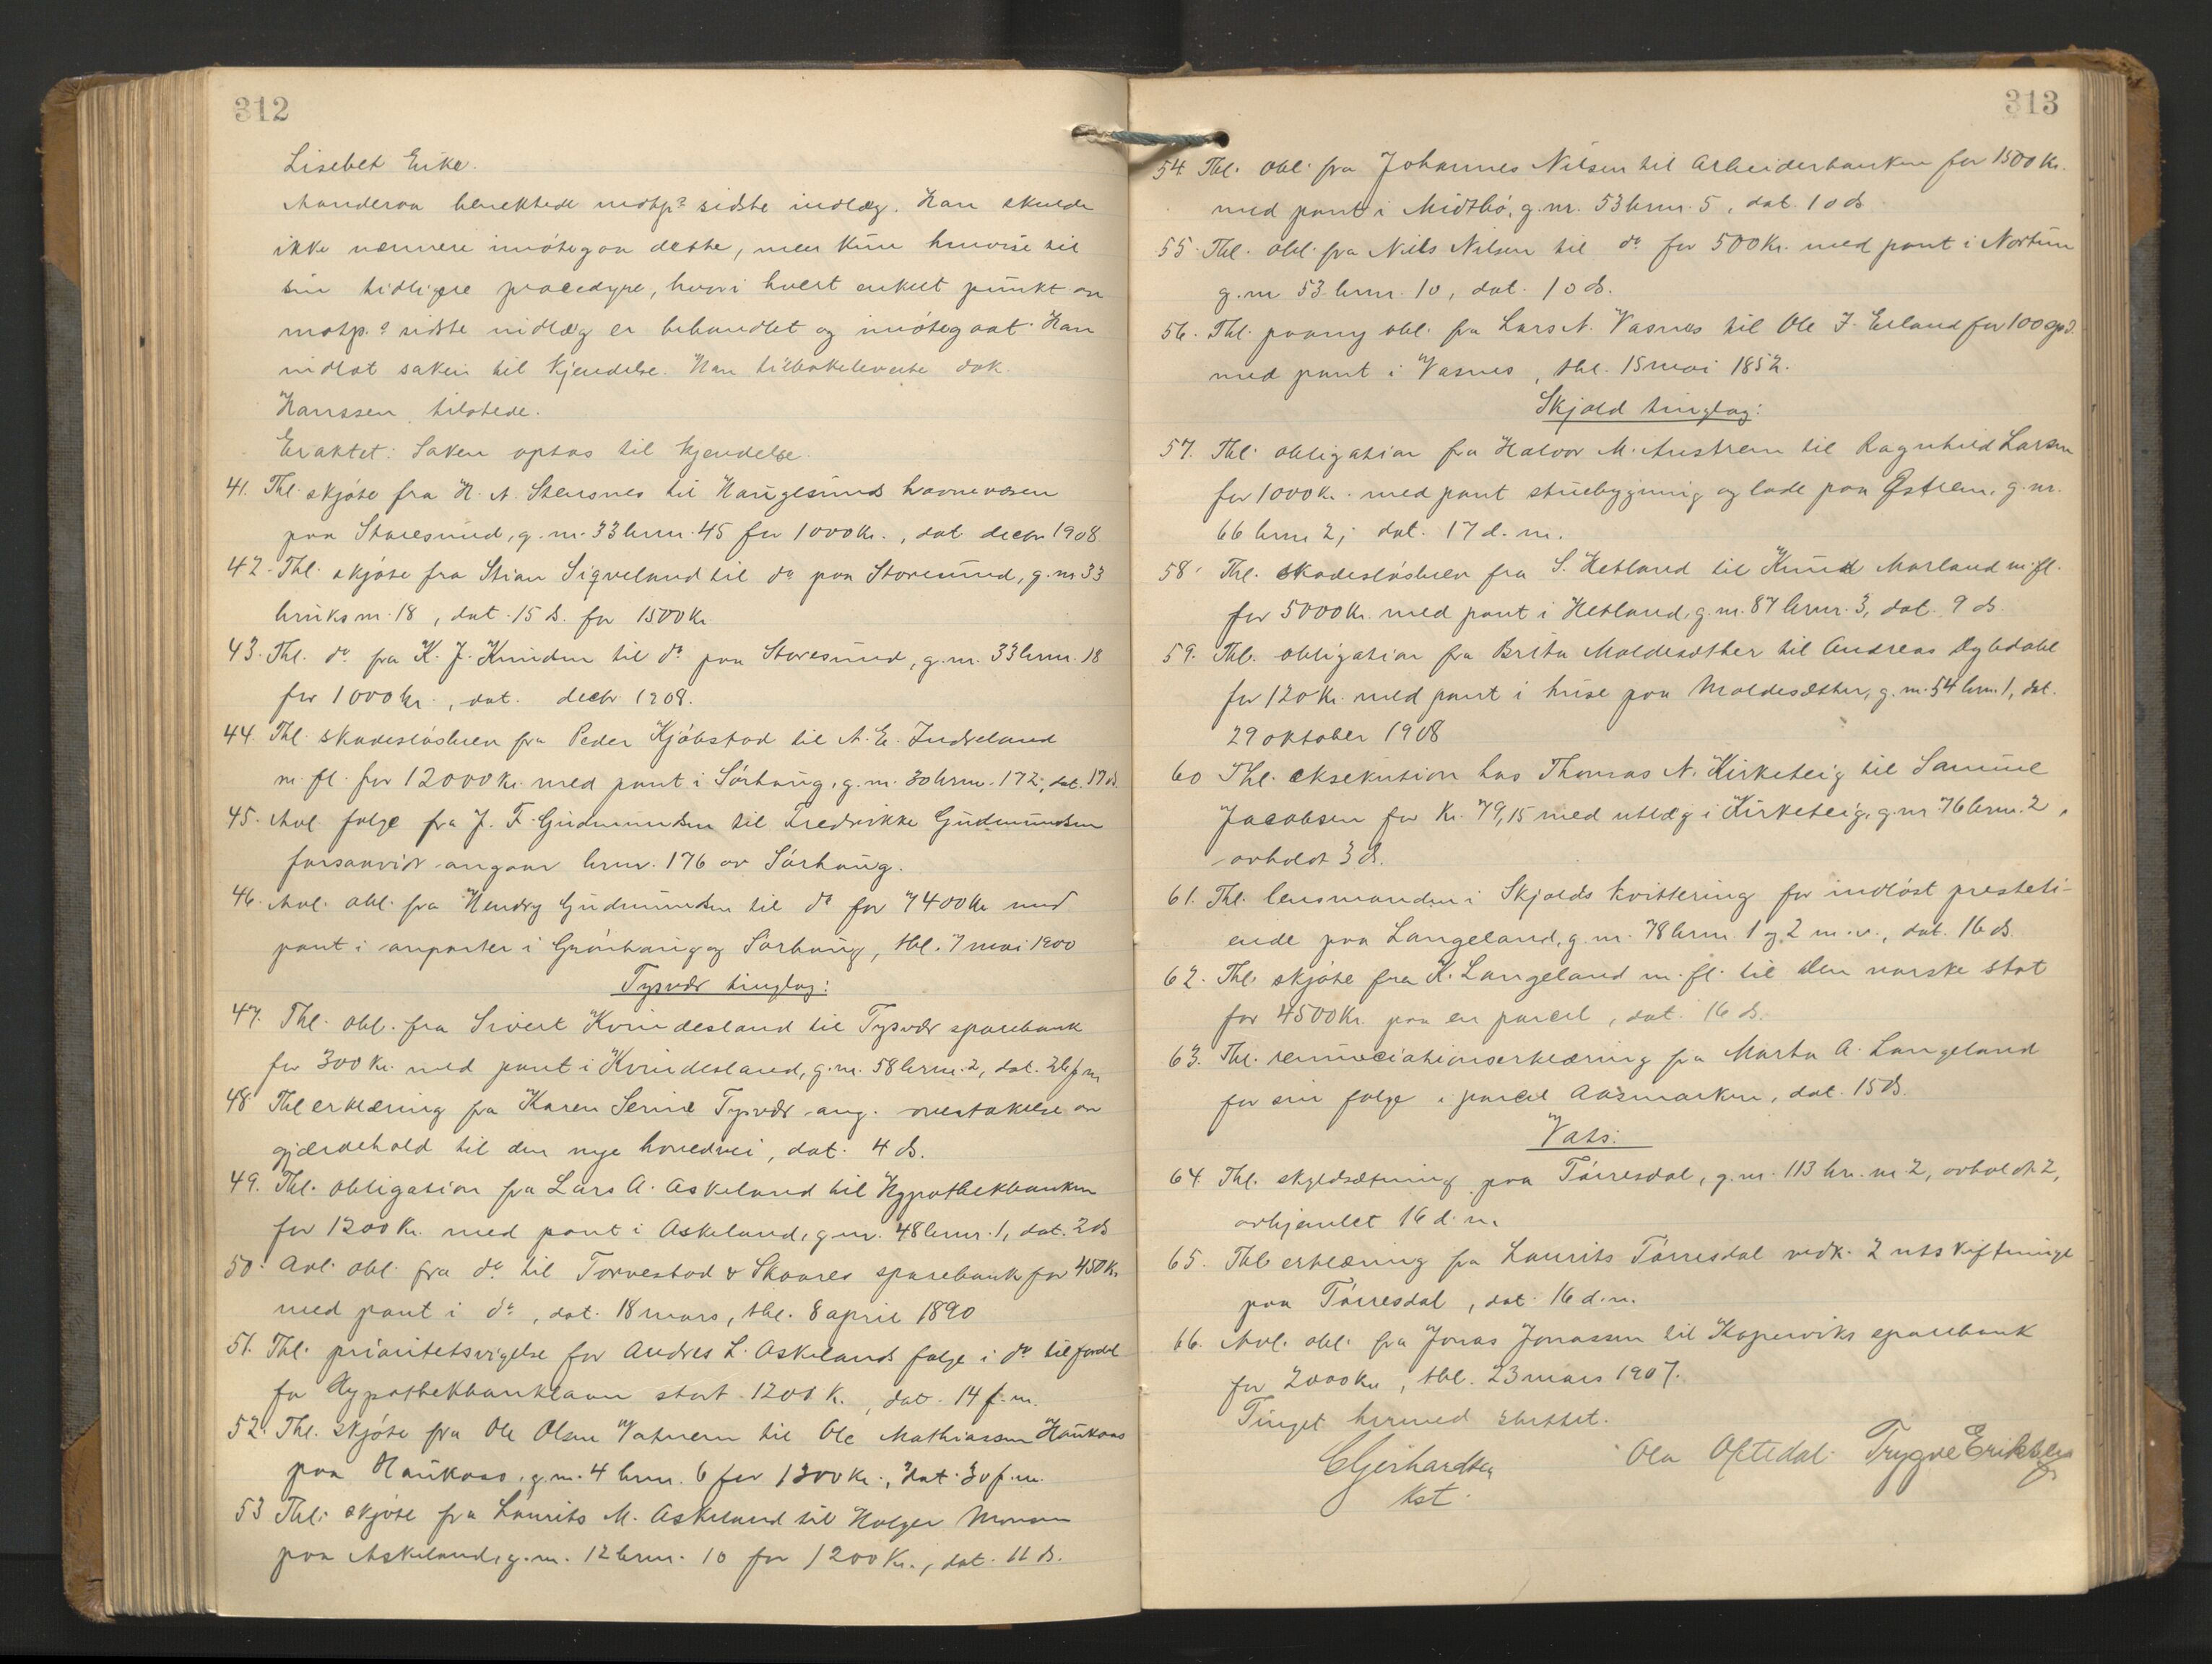 312
Lisebet Eike.
Aanderaa benektede motp.s sidste indlæg. Han skulde
ikke nærmere imøtegaa dette, men kun henvise til
sin tidligere procedyre, hvori hvert enkelt punkt av
motp.s sidste indlæg er behandlet og imøtegaat. Han
indlot saken til kjendelse. Han tilbakeleverte dok.
Hanssen tilstede.
Eraktet: Saken optas til kjendelse.
41. Thl. skjøte fra H. A. Stensnes til Haugesunds havnevæsen
paa Storesund, g. nr. 33 brnr. 45 for 1000 kr., dat. decbr 1908
42. Thl. skjøte fra Stian Sigveland til do paa Storesund, g. nr 33
bruksnr. 18, dat. 15 ds. for 1500 Kr
43. Thl. do fra K. J. Knudsen til do paa Storesund, g. nr. 33 brnr. 18
for 1000 kr., dat. decbr 1908.
44. Thl. skadesløsbrev fra Peder Kjøbstad til A. E. Indreland
m. fl. for 12000 Kr. med pant i Sørhaug, g. nr. 30 brnr. 172, dat. 17 ds.
45. Avl. følge fra J. F. Gudmundsen til Fredrikke Gudmundsen
forsaavidt angaar brnr. 176 av Sørhaug.
46. Avl. obl. fra Hendry Gudmundsen til do for 7400 Kr med
pant i anparter i Grønhaug og Sørhaug, thl. 7 mai 1900
Tysvær tinglag:
47. Thl. obl. fra Sivert Kvindesland til Tysvær sparebank
for 300 Kr. med pant i Kvindesland, g. nr. 58 brnr. 2, dat. 26 f m
48 Thl erklæring fra Karen Serine Tysvær ang. overtakelse av
gjærdehold til den nye hovedvei, dat. 4 ds.
49. Thl. obligation fra Lars A. Askeland til Hypothekbanken
for 1200 Kr. med pant i Askeland, g nr. 48 brnr. 1, dat. 2 ds
50. Avl. obl. fra do til Torvestad & Skaares sparebank for 450 Kr.
med pant i do, dat. 18 mars, thl. 8 april 1890
51. Thl. prioritetsvigelse for Andres L. Askelands følge i do til fordel
for Hypothekbanklaan stort 1200 K., dat. 14 f. m.
52. Thl. skjøte fra Ole Olsen Vatnem til Ole Mathiassen Haukaas
paa Haukaas, g. nr. 4 brnr. 6 for 1300 Kr., dat. 30 f. m.
53 Thl. skjøte fra Laurits M. Askeland til Holger Monsen
paa Askeland, g. nr. 12 brnr. 10 for 1200 Kr., dat. 11 ds.
313
54. Thl. obl. fra Johannes Nilsen til Arbeiderbanken for 1500 Kr.
med pant i Midtbø, g. nr. 53 brnr. 5, dat. 10 ds
55. Thl. obl. fra Nils Nilsen til do for 500 Kr. med pant i Nortun
g. nr 53 brnr. 10, dat. 10 ds.
56. Thl. paany obl. fra Lars N. Vasnes til Ole J. Erland for 100 spd.
med pant i Vasnes, thl. 15 mai 1852.
Skjold tinglag:
57. Thl. obligation fra Halvor M. Austrem til Ragnhild Larsen
for 1000 Kr. med pant stuebygning og lade paa Østrem, g. nr.
66 brnr 2, dat. 17 d. m.
58. Thl. skadesløsbrev fra S. Hetland til Knud Marland m. fl.
for 5000 Kr. med pant i Hetland, g. nr. 87 brnr. 3, dat. 9 ds.
59. Thl. obligation fra Brita Moldesæther til Andreas Dybdahl
for 120 Kr. med pant i huse paa Moldesæther, g. nr. 54 brnr. 1, dat.
29 oktober 1908
60 Thl. eksekution hos Thomas N. Kirketeig til Samuel
Jacobsen for Kr. 79,15 med utlæg i Kirketeig, g. nr 76 brnr. 2,
avholdt 3 ds.
61. Thl. lensmanden i Skjolds kvittering for indløst presteti-
ende paa Langeland, g. nr. 78 brnr. 1 og 2 m. v., dat. 16 ds.
62. Thl. skjøte fra K. Langeland m. fl. til den norske stat
for 4500 Kr. paa en parcel, dat. 16 ds.
63. Thl. renunciationserklæring fra Marta A. Langeland
for sin følge i parcel Aasmarken, dat. 15 ds.
Vats:
64. Thl. skyldsætning paa Tørresdal, g. nr. 113 br. nr 2, avholdt 2,
avhjemlet 16 d. m.
65. Thl erklæring fra Laurits Tørresdal vedk. 2 utskiftninger
paa Tørresdal, dat. 16 d. m.
66. Avl. obl. fra Jonas Jonassen til Kopervik sparebank
for 2000 Kr, thl. 23 mars 1907.
Tinget hermed sluttet.
C Gjerhardsen Ola Oftedal. Trygve Eriksen
kst.